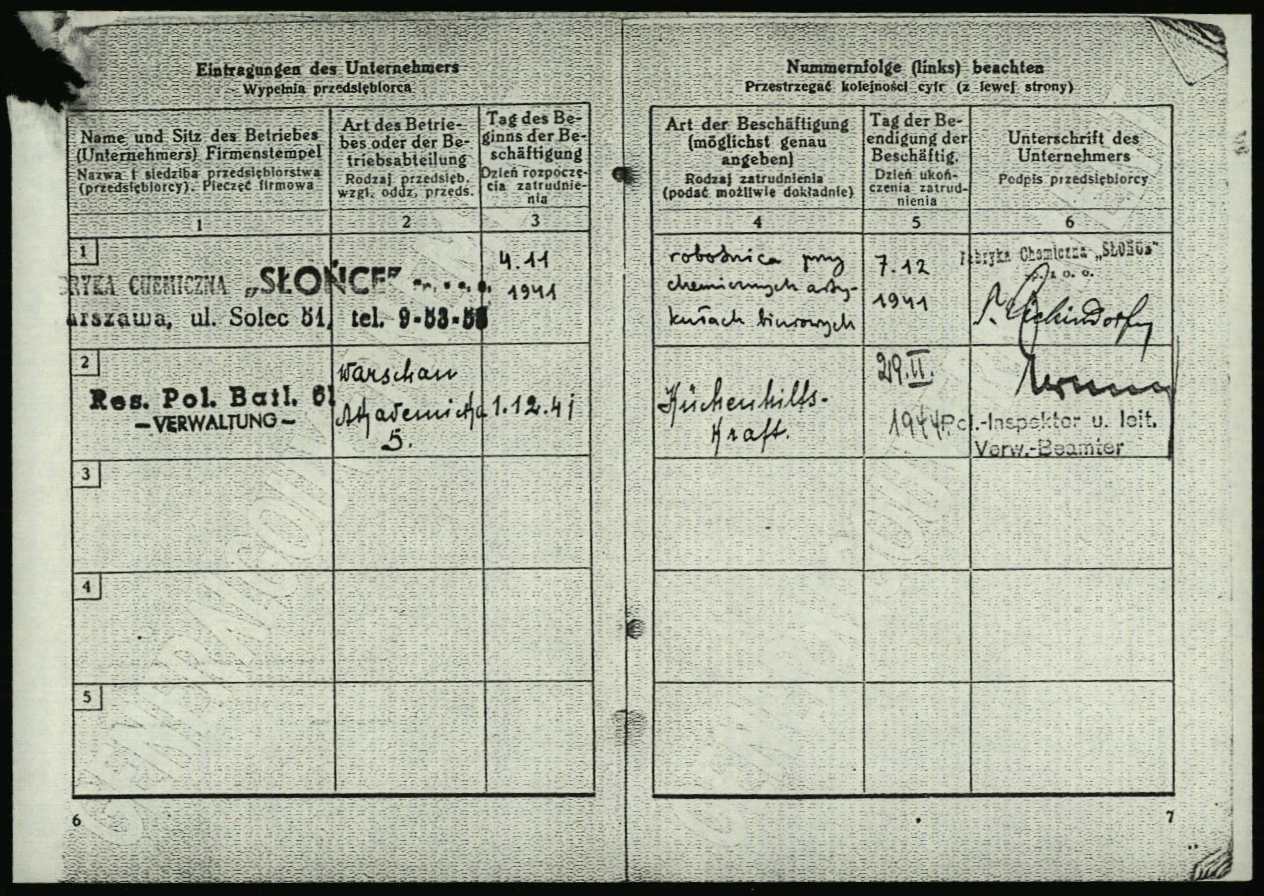 Eintragungen des Unternehmers
Wypełnia przedsiębiorca
Name und Sitz des Betriebes
(Unternehmers) Firmenstempel
Nazwa i siedziba przedsiębiorstwa
(przedsiębiorcy). Pieczęć firmowa
Art des Betrie-
bes oder der Be-
triebsabteilung
Rodzaj przedsięb.
wzgl. oddz. przęds.
Tag des Be-
ginns der Be-
schäftigung
Dzień rozpoczę-
cia zatrudnie-
nia
1
2
3
1
RYKA CHEMICZNA „SŁOŃCE"
arszawa, ul. Solec 51, tel. 9-53-53
4.11
1941
2
Res. Pol. Batl. 61
—VERWALTUNG—
Warschau
Akademicka
5.
1.12.41
3
4
5
6
Nummernfolge (links) beachten
Przestrzegać kolejności cyfr (z lewej strony)
Art der Beschäftigung
(möglichst genau
angeben)
Rodzaj zatrudnienia
(podać możliwie dokładnie)
Tag der Be-
endigung der
Beschäftig.
Dzień ukoń-
czenia zatrud-
nienia
Unterschrift des
Unternehmers
Podpis przedsiębiorcy
4
5
6
robotnica przy
chemicznych arty-
kułach biurowych
7.12
1941
Fabryka Chemiczna
z o. o.
Küchenhilfs-
Kraft.
29.II.
1944
Pol.-Inspektor u. leit.
Verw.-Beamter
7